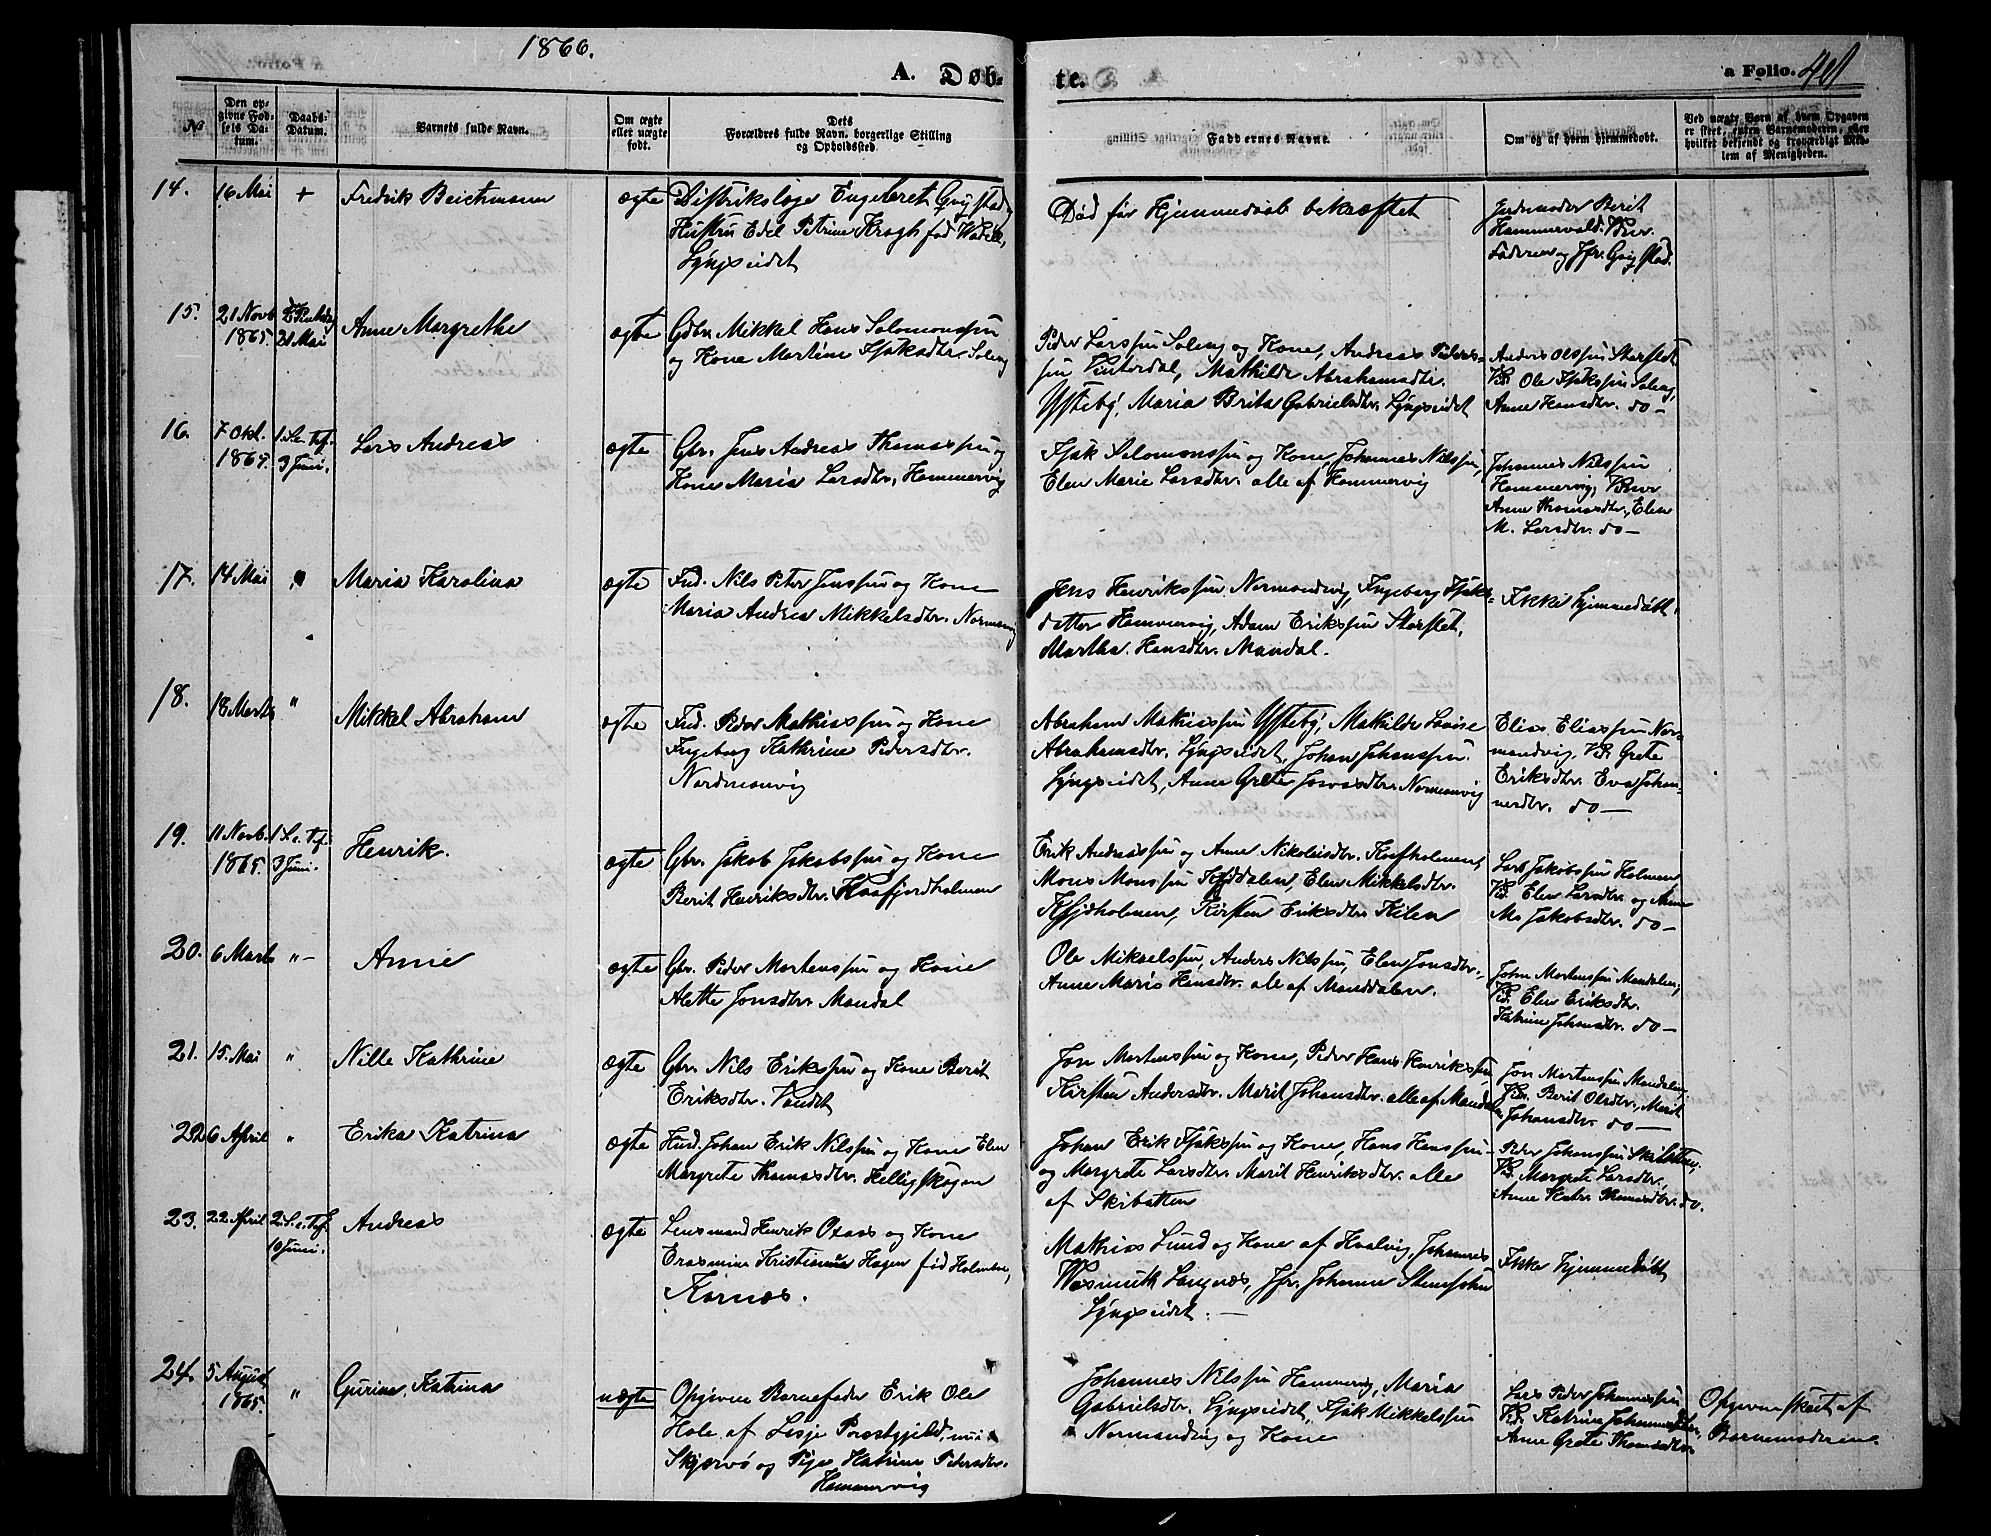 1866.
A. Døb-
te.
a Folio. 401
No
Den op-
givne Fød-
sels Da-
tum.
Daabs-
Datum.
Barnets fulde Navn.
Om ægte
eller uægte
født.
Dets
Forældres fulde Navn, borgerlige Stilling
og Opholdssted.
Faddernes Navne.
Om og af hvem hjemmedøbt.
Ved uægte Børn af hvem Opgaven
er skeet, enten Barnemoderen, eller
hvilket bekjendt og troværdigt Med-
lem af Menigheden.
14. 16 Mai + Fredrik Beichmann ægte
Distriktslæge Engebret Gvigstad,
Hustru Edel Petrine Krogh fød
Lyngseidet
Død før Hjemmedaab bekræftet
Jordemoder Berit
Hammervold.
Faderen og Jfr. Gvigstad.
15. 21 Novb. 1865. 2 Pintsed. 21 Mai Anne Margrethe ægte
Gdbr. Mikkel Hans Salomonssøn
og Kone Martine Isaksdtr. Soleng
Peder Larssøn Soleng og Kone, Andreas Peders-
søn Vinterdal, Mathilde Abrahamsdtr.
Ysteby, Maria Brita Gabrielsdtr. Lyngseidet
Anders Olssøn Storslet
Vid. Ole Isakssøn Soleng,
Anne Hansdtr. do –
16. 7 Okt. 1865. 1 S. e. Tref. 3 Juni. Lars Andreas ægte
Gbr. Jens Andreas Thomassøn og
Kone Maria Larsdtr. Hammervig
Isak Salomonssøn og Kone, Johannes Nilssøn,
Elen Marie Larsdtr. alle af Hammervig
Johannes Nilssøn
Hammervig,
Anne Thomasdtr., Elen
M. Larsdtr. do –
17. 14 Mai " Maria Karolina ægte
Ind. Nils Peter Jenssøn og Kone
Maria Andrea Mikkelsdtr. Normanvig
Jens Henrikssøn Normandvig, Ingeborg Isaks-
datter Hammervig, Adam Erikssøn Storslet,
Martha Hansdtr. Mandal.
Ikke hjemmedøbt.
18. 18 Marts " Mikkel Abraham ægte
Ind. Peder Mathissøn og Kone
Ingeborg Kathrine Pedersdtr.
Nordmanvig
Abraham Mathissøn Ysteby, Mathilde Lovise
Abrahamsdtr. Lyngseidet, Johan Johanssøn
Lyngseidet, Anne Grete Josvasdtr. Normanvig
Elias Eliassøn Nor-
mandvig. Vid. Grete
Eriksdtr. Eva Johan-
nesdtr. do –
19. 11 Novb. 1865. 1 S. e. Tref. 3 Juni. Henrik. ægte
Gbr. Jakob Jakobssøn og Kone
Berit Henriksdtr. Kaafjordholmen
Erik Andreassøn og Anne Nikolaisdtr. Kaafholmen,
Mons Monssøn Kjddalen, Elen Mikkelsdtr.
Kfjdholmen, Kirsten Eriksdtr. Kilen
Lars Jakobssøn Holmen
Vid. Elen Larsdtr. og Anne
M. Jakobsdtr. do –
20. 6 Marts " – Anne ægte
Gbr. Peder Mortenssøn og Kone
Alette Jonsdtr. Mandal
Ole Mikaelssøn, Anders Nilssøn, Elen Jonsdtr.,
Anne Maria Hansdtr. alle af Manddalen.
John Mortenssøn Mandalen,
Vid. Elen Eriksdtr.
Katrine Johansdtr. do –
21. 15. Mai " Nille Kathrine ægte
Gbr. Nils Erikssøn og Kone Berit
Eriksdtr. Vandet
Jon Mortenssøn og Kone, Peder Hans Henrikssøn,
Kirsten Andersdtr. Marit Johansdtr. alle af Mandalen
Jon Mortenssøn Mandalen,
Vid. Berit Olsdtr., Marit
Johansdtr. do –
22. 6 April " Erika Katrina ægte
Husd. Johan Erik Nilssøn og Kone Elen
Margrete Thomasdtr. Helligskogen
Johan Erik Isakssøn og Kone, Hans Hanssøn
og Margrete Larsdtr. Marit Henriksdtr. alle
af Skibotten
Peder Johanssøn Skibotten,
Vid. Margrete Larsdtr.,
Anne Katr. Thomasdtr. do.
23. 22 April 2 S. e. Tref. 10 Juni. Andreas ægte
Lensmand Henrik Olsøe og Kone
Erasmine Kristianna Hagen fød Holmboe,
Karnæs.
Mathias Lund og Kone af Kvalvig, Johannes
Wasmuth Langnæs, Jfr. Johanne Steensohn
Lyngseidet. –
Ikke hjemmedøbt
24. 5 August 1865. " Gurine Katrina uægte
Opgiven Barnefader Erik Ole
Hole af Lesje Præstegjeld, nu i
Skjærvø og Pige Katrine Pedersdtr.
Hammervig
Johannes Nilssøn Hammervig, Maria
Gabrielsdtr. Lyngseidet, Isak Mikkelssøn
Normandvig og Kone
Lars Peder Johannessøn
Vid. Katrina Johannesdtr.,
Anne Grete Thomasdtr.
Opgiven skeet af
Barnemoderen.